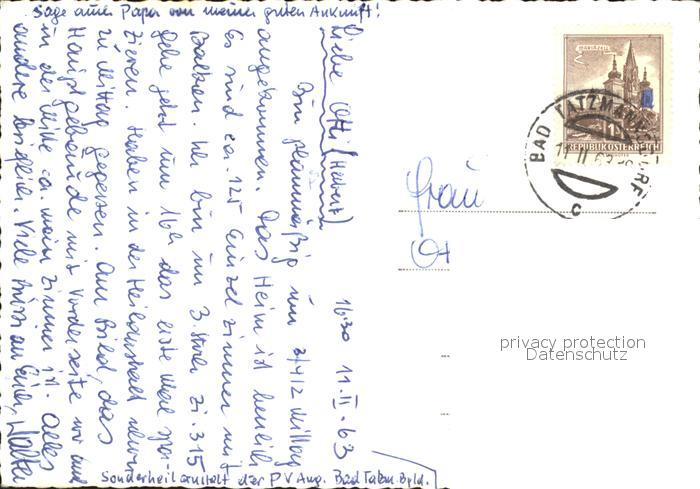 Sage auch Papa von meiner guten Ankunft!
Liebe Otti (Herbert) 16:30 11.II.63
Bin planmäßig um 3/4 12 Mittag
angekommen. Das Heim ist herrlich
Es sind ca. 125 Einzelzimmer mit
Balkon. Ich bin im 3. Stock Zi. 315
Gehe jetzt um 16h das erste Mal spa-
zieren. Haben in der Heilanstalt schon
zu Mittag gegessen. Am Bild, das
Hauptgebäude mit Vorderseite wo
in der Mitte ca. mein Zimmer ist. Alles
andere brieflich. Viele Bussi an Euch, Walter
Sonderheilanstalt der PV Ang. Bad Tatzm. Bgld.
MARIAZELL
1
REPUBLIK ÖSTERREICH
BAD TATZMANNSDORF
11 II 63
c
Frau
Ot
privacy protection
Datenschutz